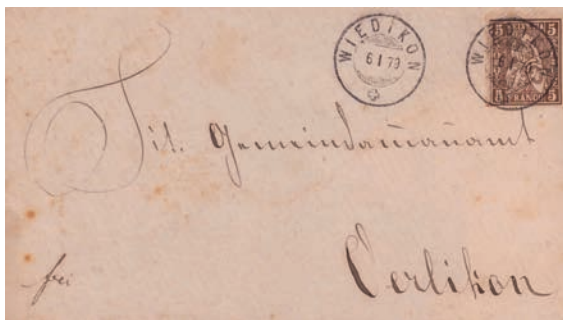 WIEDIKON
6 I 79
WIEDIKON
5 5
FRANCO
5 5
Tit. Gemeindam̅an̅amt
frei
Oerlikon